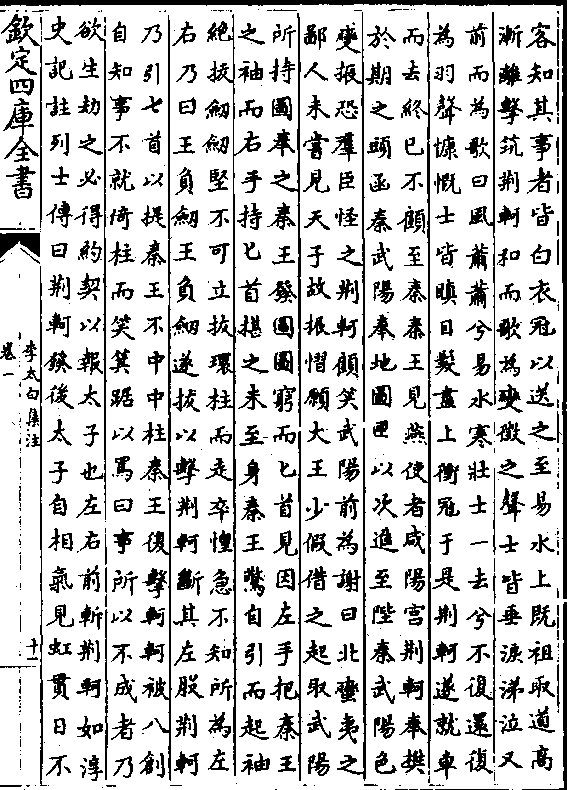 客知其事者皆白衣冠以送之至易水上既祖取道高
漸離擊筑荆軻和而歌為變徵之聲士皆垂淚涕泣又
前而為歌曰風蕭蕭兮易水寒壯士一去兮不復還復
為羽聲慷慨士皆瞋目髮盡上衝冠于是荆軻遂就車
而去終已不顧至秦秦王見燕使者咸陽宫荆軻奉樊
於期之頭函秦武陽奉地圖匣以次進至陛秦武陽色
變振恐羣臣怪之荆軻顧笑武陽前為謝曰北蠻夷之
鄙人未嘗見天子故振慴願大王少假借之起取武陽
所持圖奉之秦王發圖圖窮而匕首見因左手把秦王
之袖而右手持匕首揕之未至身秦王驚自引而起袖
絶拔劒劒堅不可立拔環柱而走卒惶急不知所為左
右乃曰王負劒王負劒遂拔以擊荆軻斷其左股荆軻
乃引七首以提秦王不中中柱秦王復擊軻軻被八創
自知事不就倚柱而笑箕踞以罵曰事所以不成者乃
欲生劫之必得約契以報太子也左右前斬荆軻如淳
史記註列士傳曰荆軻發後太子自相氣見虹貫日不
欽定四庫全書
李太白集注
卷一
十一